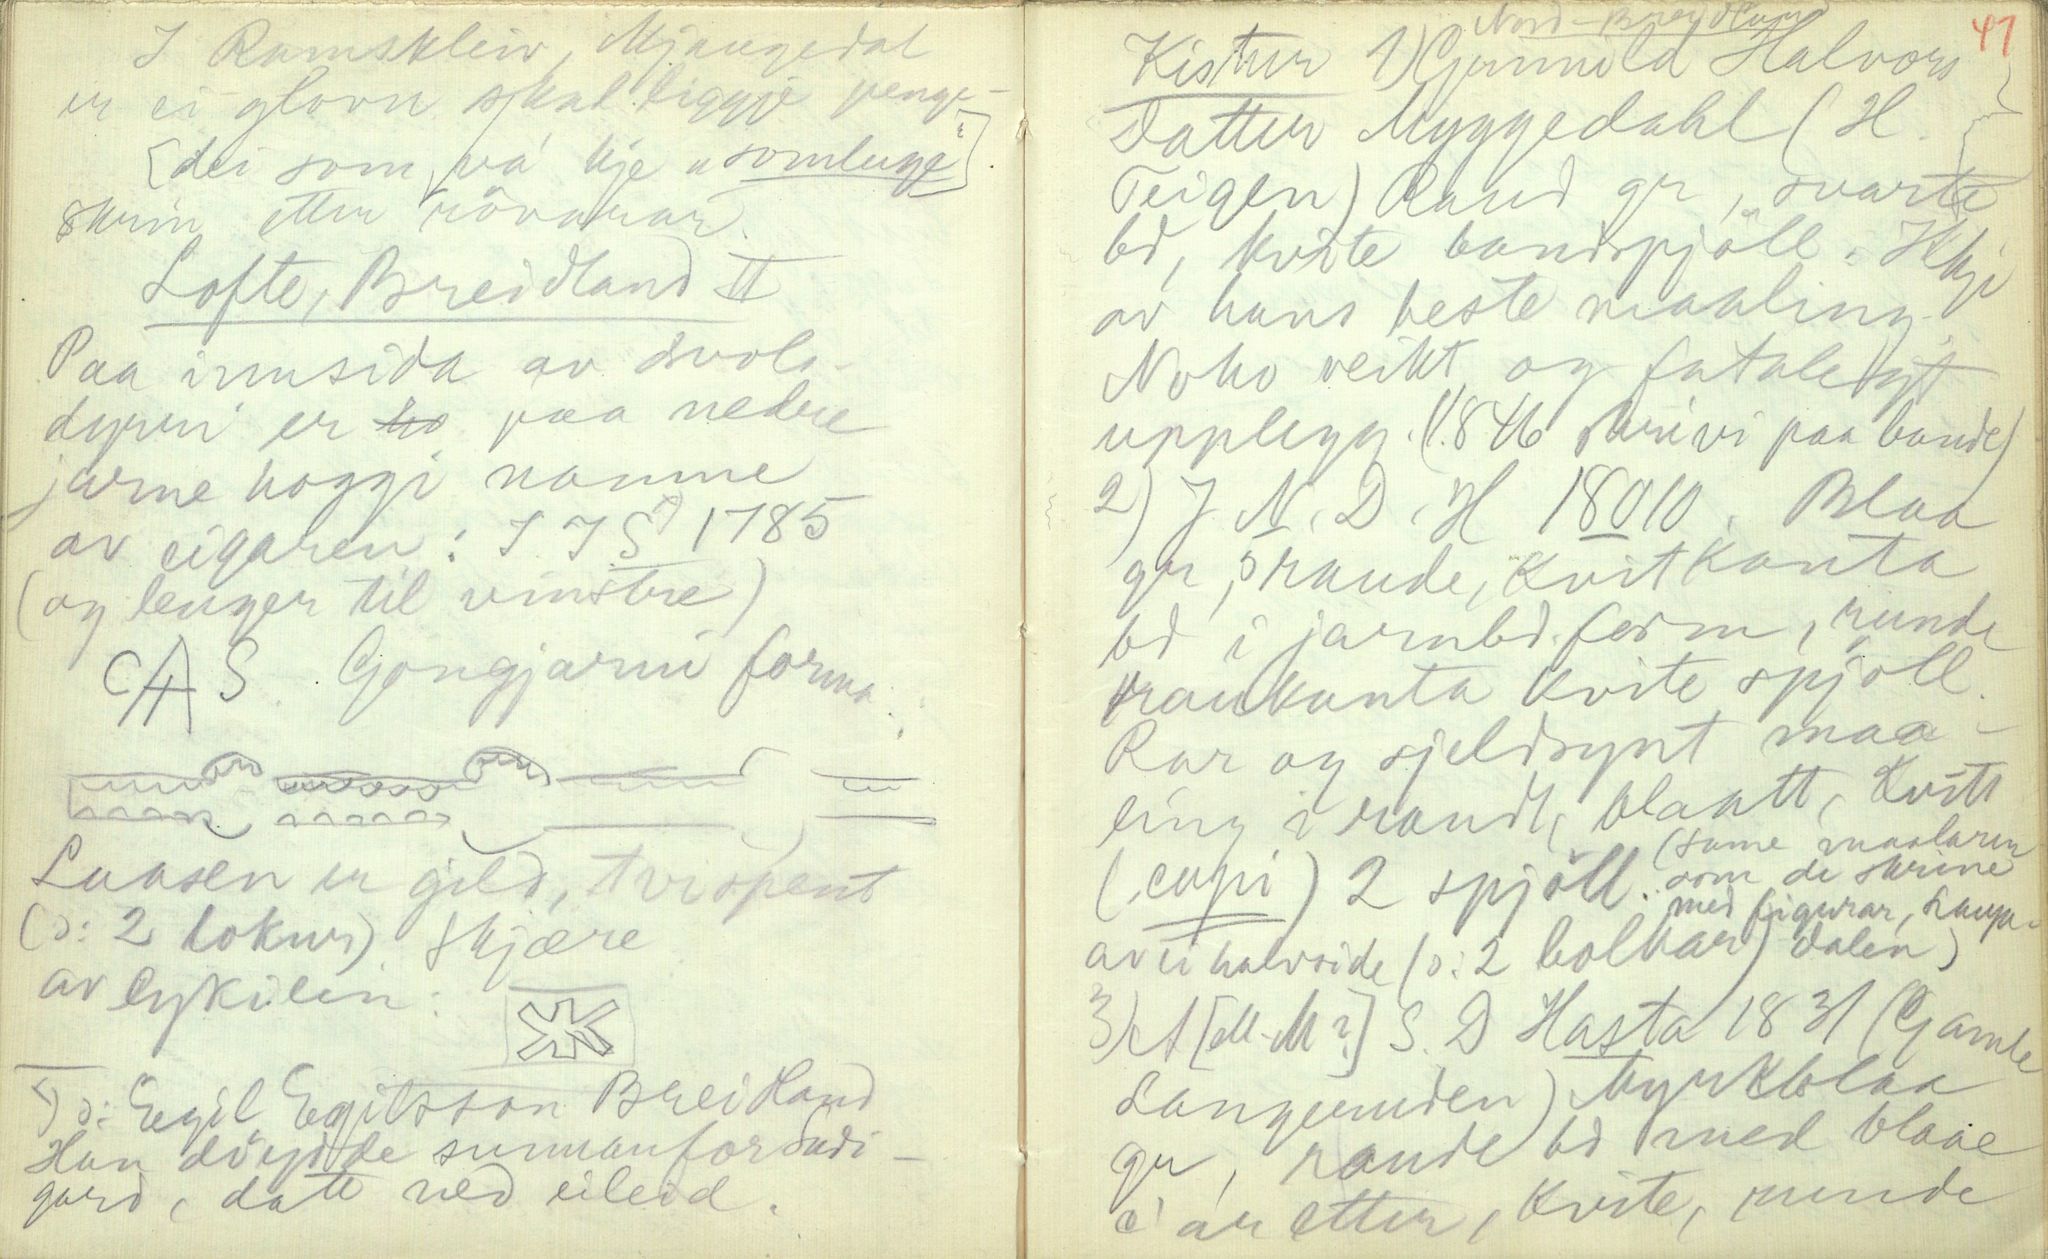 I Ramskleiv, Mjaugedal
er ei glovn skal liggje penge-
[dei som va kje "somlugge"]
skrin etter rövarar.
Lofte, Breidland II
Paa innsida av svols-
dyrni er ho paa nedre
jarne hoggi namne
av eigaren: I I S 1785
(og lenger til vinstre)
C A S. Gongjarni forma:
Laasen er gild, tvispent
(ɔ: 2 lokur) Skjære
av lykilen:
ɔ: Egil Egilsson Breidland
Han döydde sunnanfor Sudi-
gard, datt ned eileid.
41
Nord-Breidland
Kistur 1) Gunnild Halvors
Datter Myggedahl (H.
Teigen) Raud gr, svarte
bd, kvite bandspjöll. Ikkje
av hans beste maaling.
Noko veikt og fatalegt
upplegg. (1846 skrivi paa bande)
2) J N. D. H 18010. Blaa
gr, raude, kvitkanta
bd i jarnbd.form, runde
raukanta kvite spjöll.
Rar og sjeldsynt maa-
ling i raudt, blaatt, kvitt
(cupi) 2 spjöll. (same maalaren
som de skrine
med figurar, Laupa-
av ei halvside (ɔ: 2 bolkar) dalen)
3) A [M-M?] S. D Hasta 1831 (Gamle
Langeruden) Myrkblaa
gr, raude bd med blaae
i ar etter, kvite, runde